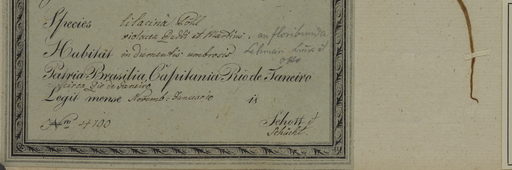 Species lilacina Pohl
violacea Raddi et Martius. an floribunda
Habitat in dumentis umbrosis Lehman
Patria Brasilia, Capitania Rio de Janeiro
circa Rio de Janeiro
Legit mense Novemb. Januario
Nro 4700 Schott
Schücht.